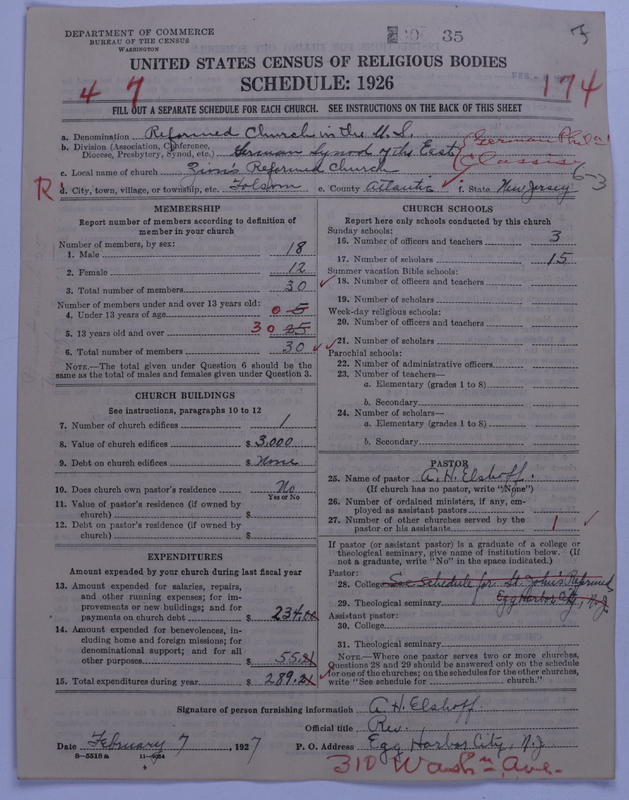 DEPARTMENT OF COMMERCE
BUREAU OF THE CENSUS
WASHINGTON
35
UNITED STATES CENSUS OF RELIGIOUS BODIES
SCHEDULE: 1926
4 7
174
FILL OUT A SEPARATE SCHEDULE FOR EACH CHURCH. SEE INSTRUCTIONS ON THE BACK OF THIS SHEET
a. Denomination Reformed Church in the U.S.
b. Division (Association, Conference, Diocese, Presbytery, Synod, etc.) German Synod of the East
German Phila
Classis
6-3
c. Local name of church Zion's Reformed Church
R
d. City, town, village, or township, etc. Folsom e. County Atlantic f. State New Jersey
MEMBERSHIP
Report number of members according to definition of
member in your church
Number of members, by sex:
1. Male 18
2. Female 12
3. Total number of members 30
Number of members under and over 13 years old:
4. Under 13 years of age 0 5
5. 13 years old and over 30 25
6. Total number of members 30
NOTE.—The total given under Question 6 should be
same as the total of males and females given under Question 3.
CHURCH BUILDINGS
See instructions, paragraphs 10 to 12
7. Number of church edifices 1
8. Value of church edifices $ 3,000
9. Debt on church edifices $ None
10. Does church own pastor's residence No
Yes or No
11. Value of pastor's residence (if owned by
church) $
12. Debt on pastor's residence (if owned by
church) $
EXPENDITURES
Amount expended by your church during last fiscal year
13. Amount expended for salaries, repairs,
and other running expenses; for im-
provements or new buildings; and for
payments on church debt $ 234.00
14. Amount expended for benevolences, in-
cluding home and foreign missions; for
denominational support; and for all
other purposes $ 55.21
15. Total expenditures during year $ 289.21
CHURCH SCHOOLS
Report here only schools conducted by this church
Sunday schools:
16. Number of officers and teachers 3
17. Number of scholars 15
Summer vacation Bible schools:
18. Number of officers and teachers
19. Number of scholars
Week-day religious schools:
20. Number of officers and teachers
21. Number of scholars
Parochial schools:
22. Number of administrative officers
23. Number of teachers—
a. Elementary (grades 1 to 8)
b. Secondary
24. Number of scholars—
a. Elementary (grades 1 to 8)
b. Secondary
PASTOR
25. Name of pastor A. H. Elshoff.
(If church has no pastor, write "None")
26. Number of ordained ministers, if any, em-
ployed as assistant pastors
27. Number of other churches served by the
pastor or his assistants 1
If pastor (or assistant pastor) is a graduate of a college or
theological seminary, give name of institution below. (If
not a graduate, write "No" in the space indicated.)
Pastor:
28. College See Schedule for St. John's Reformed
29. Theological seminary Egg Harbor City, N.J.
Assistant pastor:
30. College
31. Theological seminary
NOTE.—Where one pastor serves two or more churches,
Questions 28 and 29 should be answered only on the schedule
for one of the churches; on the schedules for the other churches,
write "See schedule for church."
Signature of person furnishing information A. H. Elshoff
Official title Rev.
Date February 7, 1927 P. O. Address Egg Harbor City, N.J.
8—5518a 11—9054
310 Wash'n Ave.